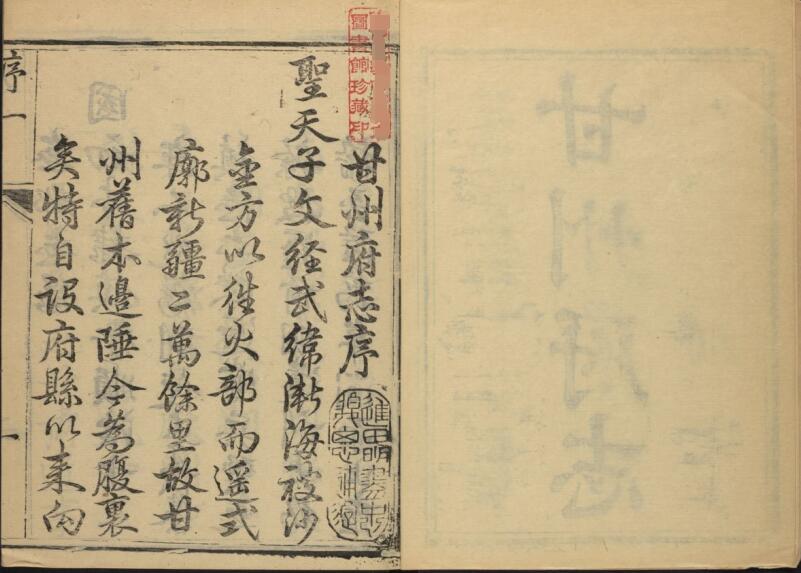 甘州府志序
聖天子文經武緯漸海被沙
金方以徃火部而遥式
廓新疆二萬餘里故甘
州舊本邊陲今為腹裏
矣特自設府縣以来向
序
一
圖書館珍藏印
甘州府志